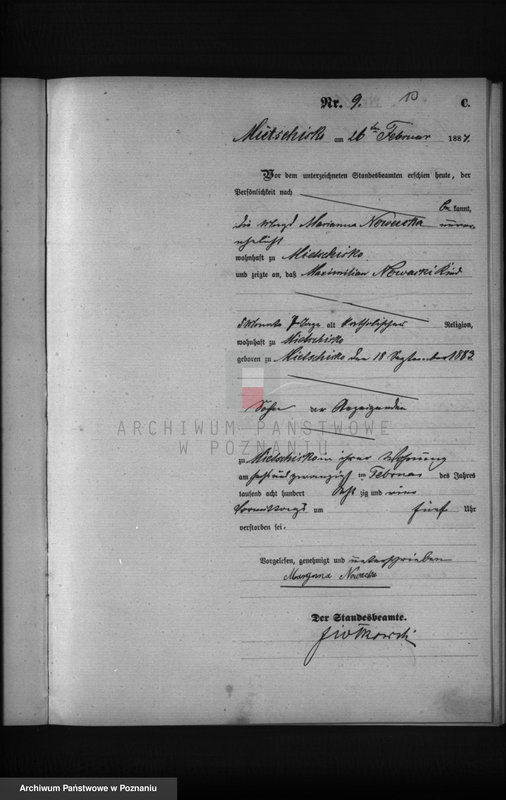 Nr. 9. 10 C.
Mietschisko am 26 ten Februar 1884.
Vor dem unterzeichneten Standesbeamten erschien heute, der
Persönlichkeit nach
be kannt,
die Magd Marianna Nowacka unver
ehelicht
wohnhaft zu Mietschisko
und zeigte an, daß Maximilian Nowacki Kind
5 Monate 7 Tage alt katholischer Religion,
wohnhaft zu Mietschisko
geboren zu Mietschisko den 18 September 1883
Sohn der Anzeigenden
ARCHIWUM PAŃSTWOWE
W POZNANIU
zu Mietschisko in ihrer Wohnung
am zwanzig ten Februar des Jahres
tausend acht hundert acht zig und vier
Vormittags um fünf Uhr
verstorben sei.
Vorgelesen, genehmigt und unterschrieben
Maryanna Nowacka
Der Standesbeamte.
Archiwum Państwowe w Poznaniu